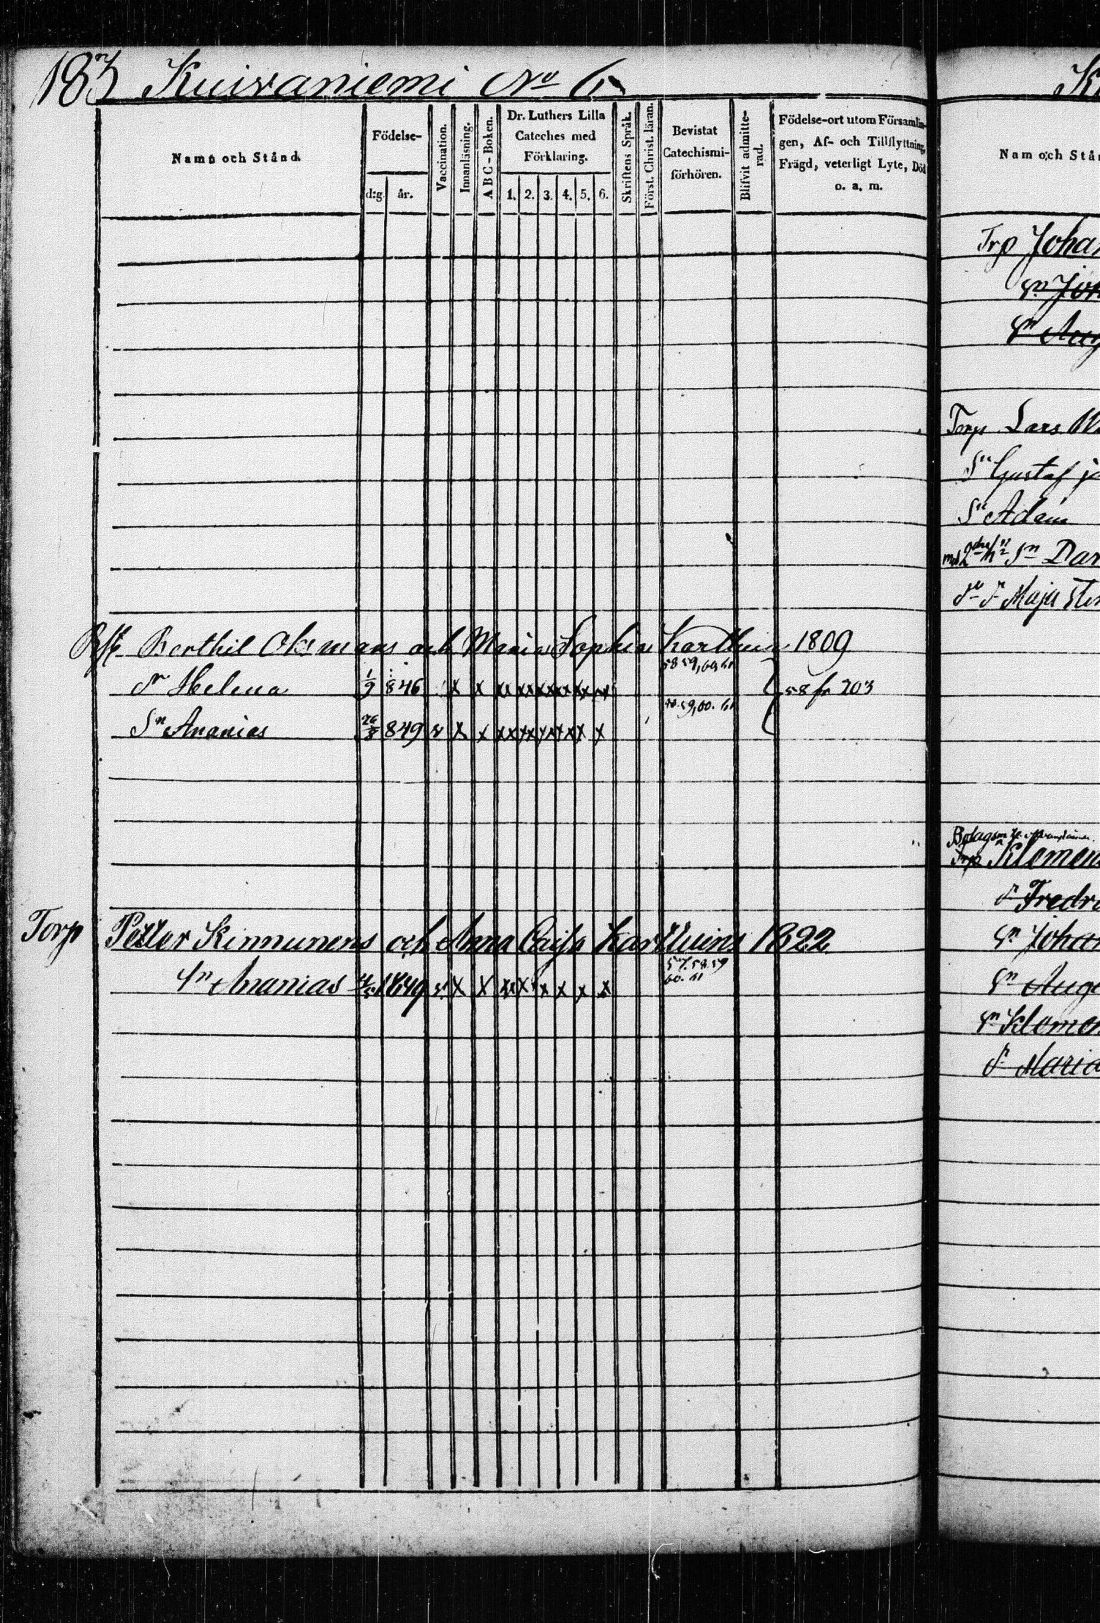 183 Kuivaniemi No 6
Namn och Stånd.
Födelse-
d:g. år.
Vaccination.
Innanläsning.
A B C - Boken.
Dr. Luthers Lilla
Cateches med
Förklaring.
1. 2. 3. 4. 5. 6.
Skriftens Språk.
Först. Christ. läran.
Bevistat
Catechismi-
förhören.
Blifvit admitte-
rad.
Födelse-ort utom Församlin-
gen, Af- och Tillflyttning,
Frägd, veterligt Lyte, Död
o. a. m.
Berthil Oksmans och Maria Sophia Karthuin 1809
58 59, 60, 61
Dr Helena 1/9 846 x x xx xx xx xx xx x 58 fr 203
59, 60. 61
Sn Ananias 26/8 849 v x x xx xx xx xx x x
Torp Petter Kinnunens och Anna Caisa Karthuins 1822
57. 58. 59
60. 61
Sn Ananias 1849 v x x xx x x x x x
Nam och Stån
Trp Johan
Sn Joh
Sn Aug
Torp Lars
Sn Gustaf
Sn Adam
Sn Dan
Dr Maja
Klemens
Fredr
Sn Johan
Sn Aug
Sn Klemen
Dr Maria